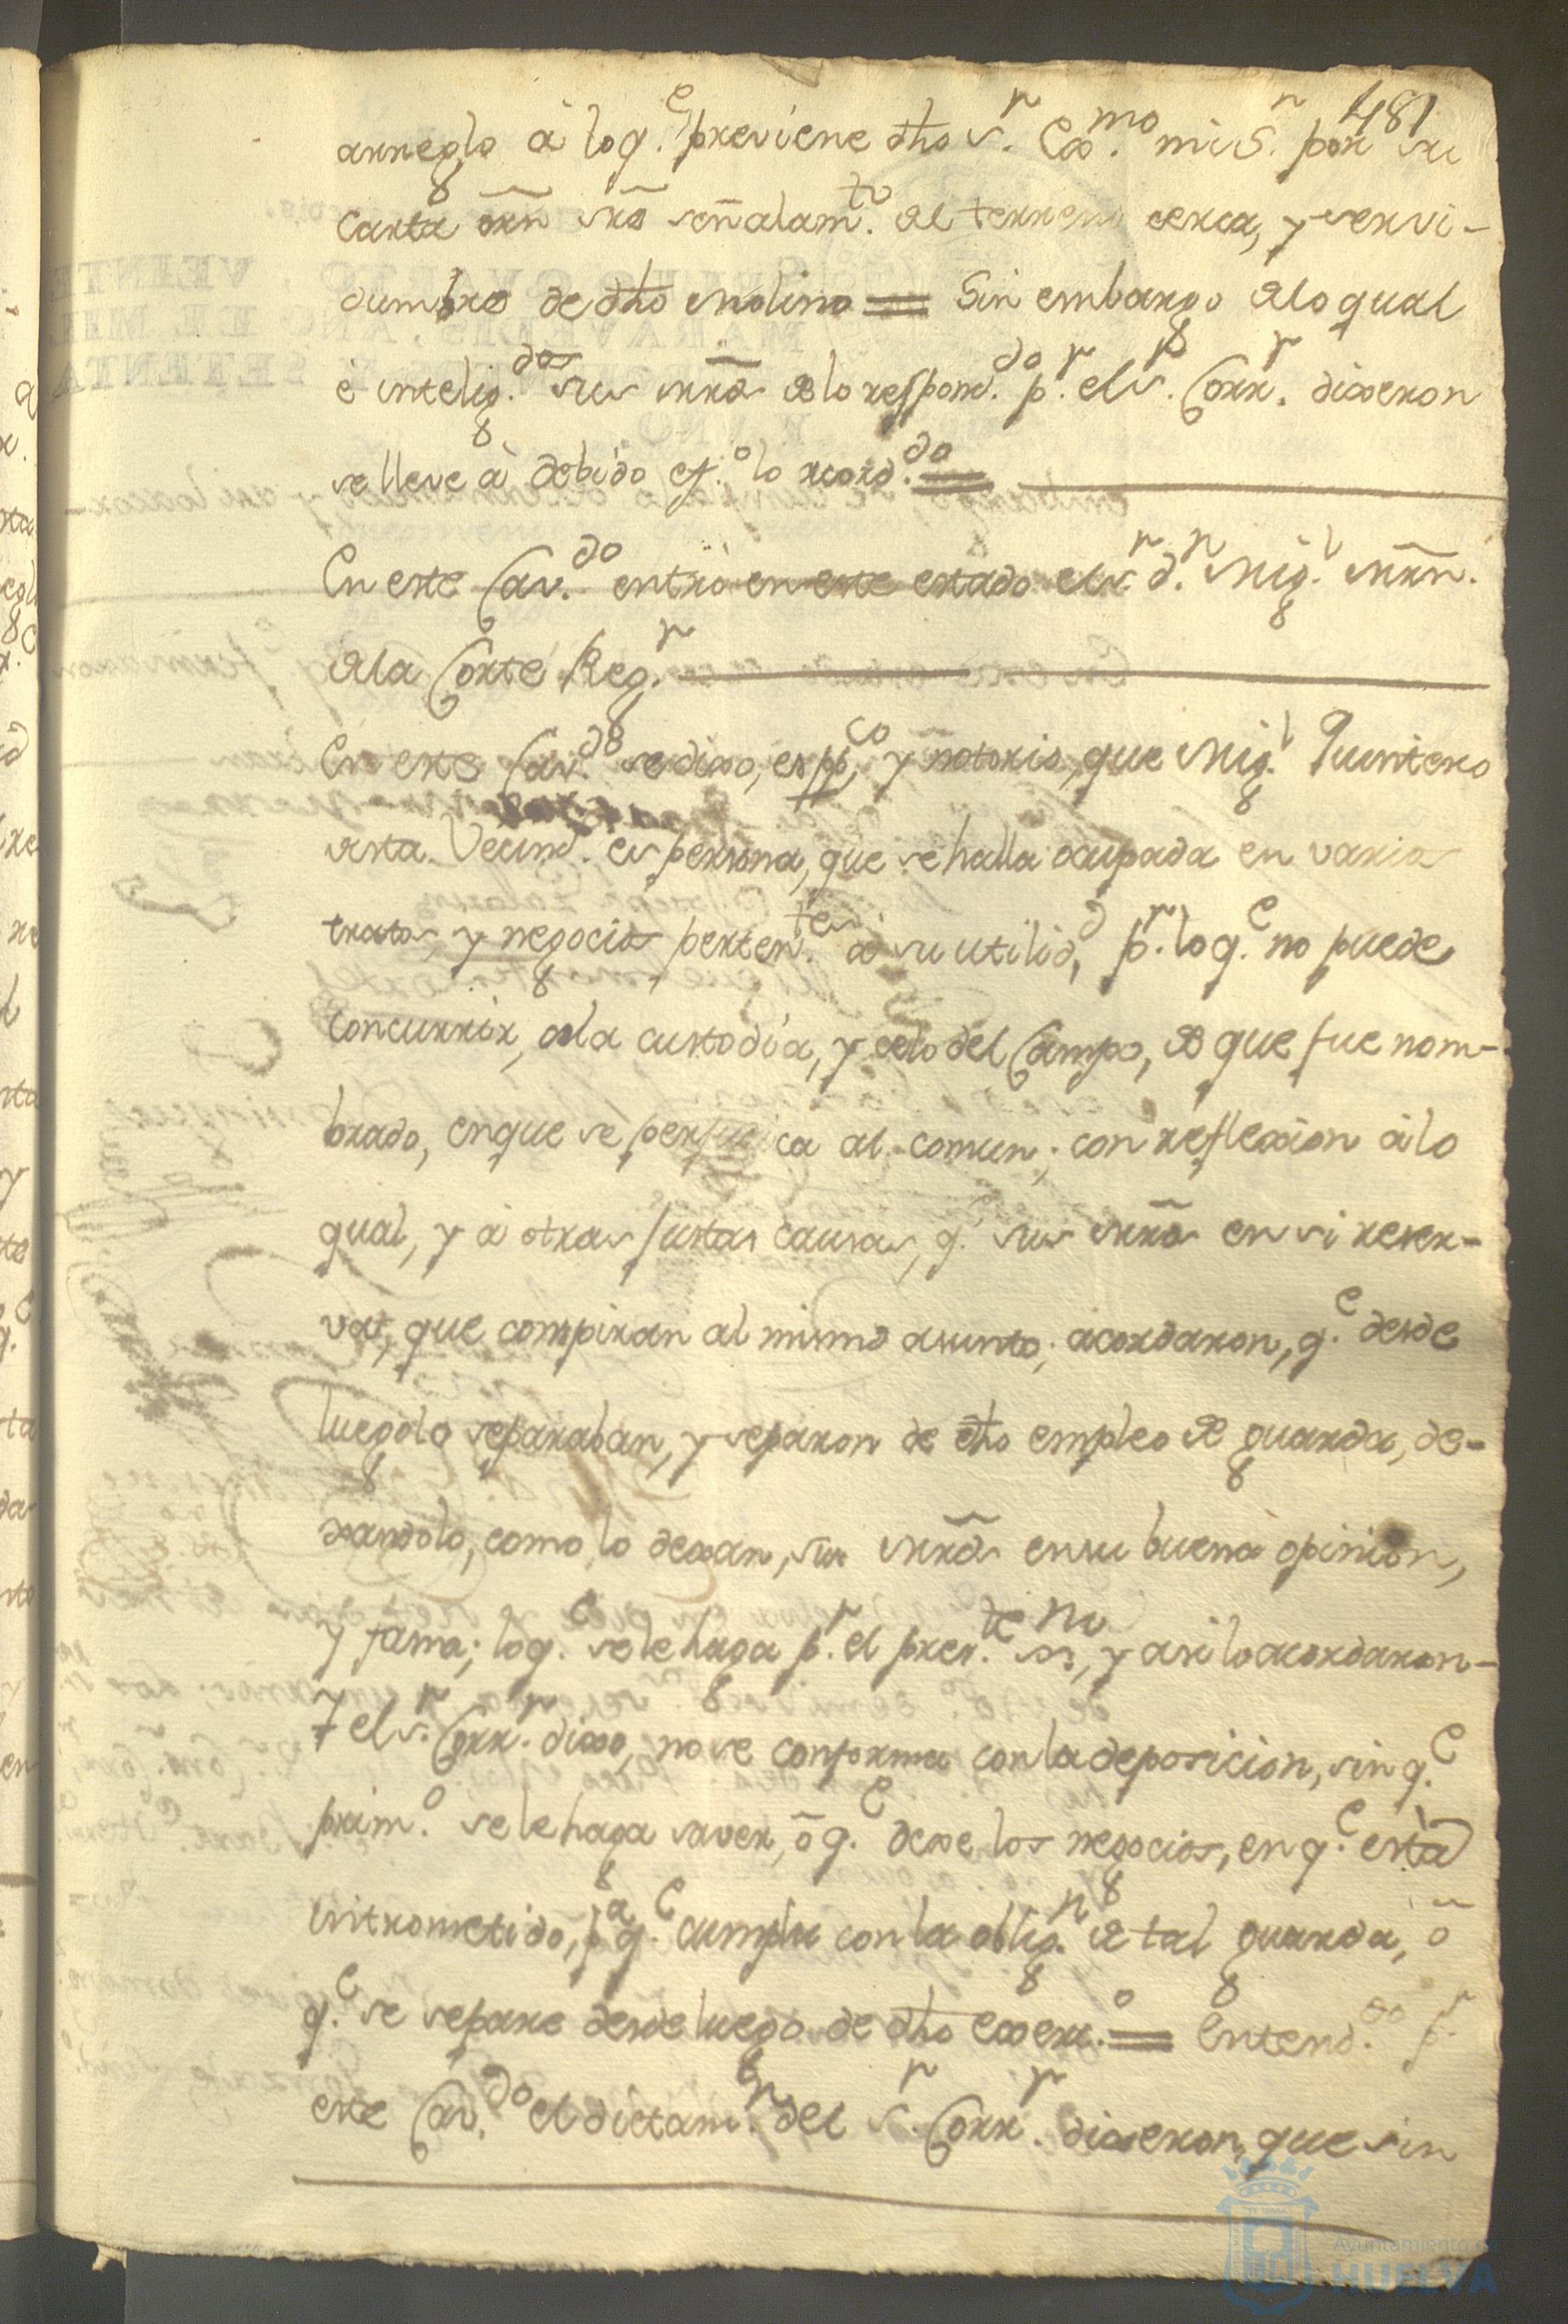 481
arreglo à loq.e previene dho s.r Exmo. mi S.n por su
carta orn señalam.to del terreno cerca, y servi-
dumbre de dho molino = Sin embargo de lo qual
è intelig.dos sus mrds de lo respond.do p.r el s.r Corr.r dixeron
se lleve à debido ef.o lo acord.do =
En este Cav.do entrò en este estado el s.r d.n Mig.l Mrn.
de la Corte Reg.r
En este Cav.do se dixo, es pp.co y notorio, que Mig.l Quintero
desta Vecind. es persona, que se halla ocupada en varios
tratos, y negocios perten.tes à su utilid.d, p.r loq.e no puede
concurrir, à la custodia, y celo del Campo, de que fue nom-
brado, enque se perjudica al comun; con reflexion à lo
qual, y à otras justas causas, q.e sus mrds en si reser-
van, que conspiran al mismo asunto; acordaron, q.e desde
luegolo separaban, y separon de dho empleo de guarda, de-
xandolo, como lo dexan, sus mrds ensu buena opinion,
y fama; loq.e sele haga p.r el pres.te ss.no, y asi lo acordaron-
Y el s.r Corr.r dixo, nose conforma conla deposicion, sin q.e
prim.o sele haga saver, ô q.e dexe los negocios, en q.e està
intrometido, p.a q.e cumpla con la oblig.n de tal guarda, ô
q.e se separe desde luego de dho exerc.o = Entend.do p.r
este Cav.do el dictam.en del s.r Corr.r dixeron, que sin
Ayuntamiento de
HUELVA